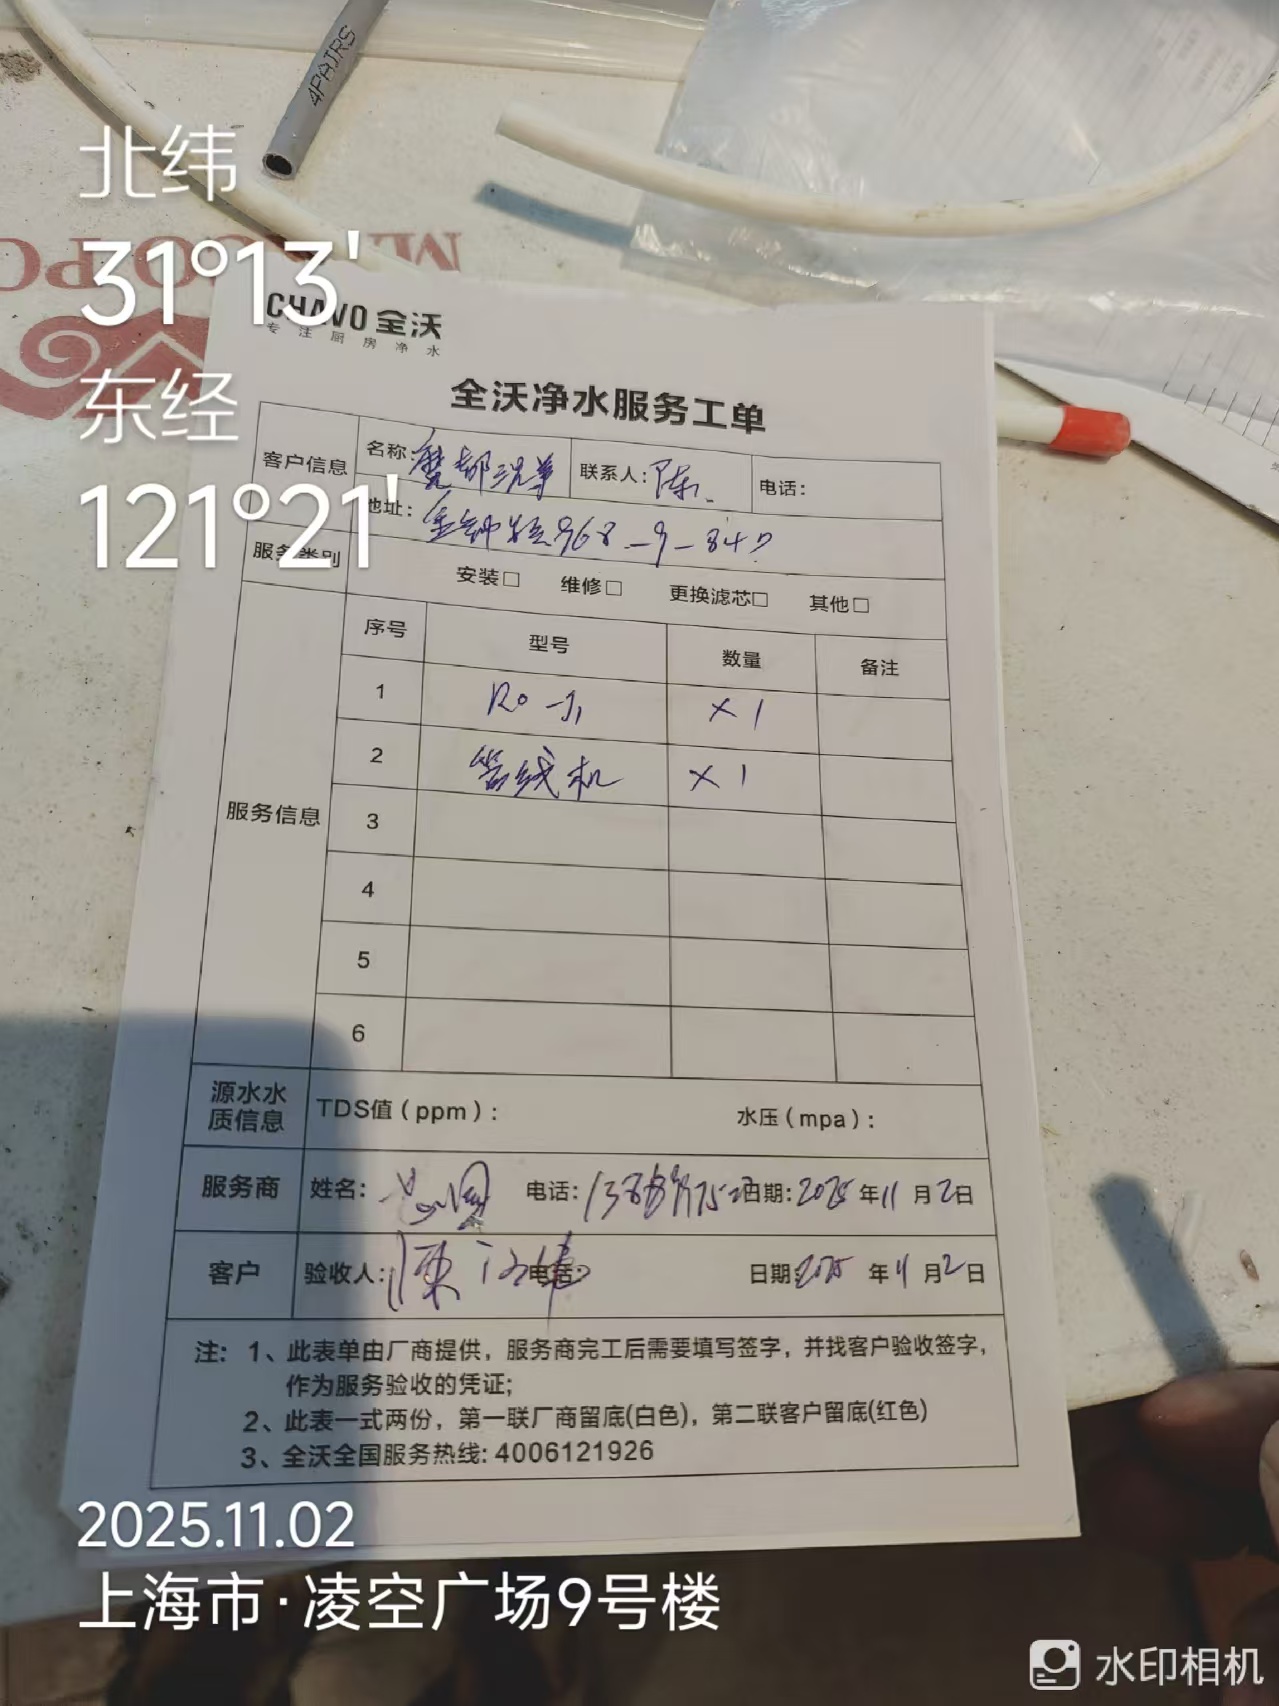 4PAIRS
北纬
31°13'
东经
121°21'
CHAVO 全沃
专注厨房净水
全沃净水服务工单
客户信息 名称: 联系人: 陈 电话:
地址: 金钟路968-9-847
服务类别 安装□ 维修□ 更换滤芯□ 其他□
服务信息 序号 型号 数量 备注
1 RO ×1
2 管线机 ×1
3
4
5
6
源水水质信息 TDS值(ppm): 水压(mpa):
服务商 姓名: 电话: 日期: 2025年11月2日
客户 验收人: 陈 电话: 日期: 2025年11月2日
注: 1、此表单由厂商提供，服务商完工后需要填写签字，并找客户验收签字，
作为服务验收的凭证;
2、此表一式两份，第一联厂商留底(白色)，第二联客户留底(红色)
3、全沃全国服务热线: 4006121926
2025.11.02
上海市·凌空广场9号楼
水印相机